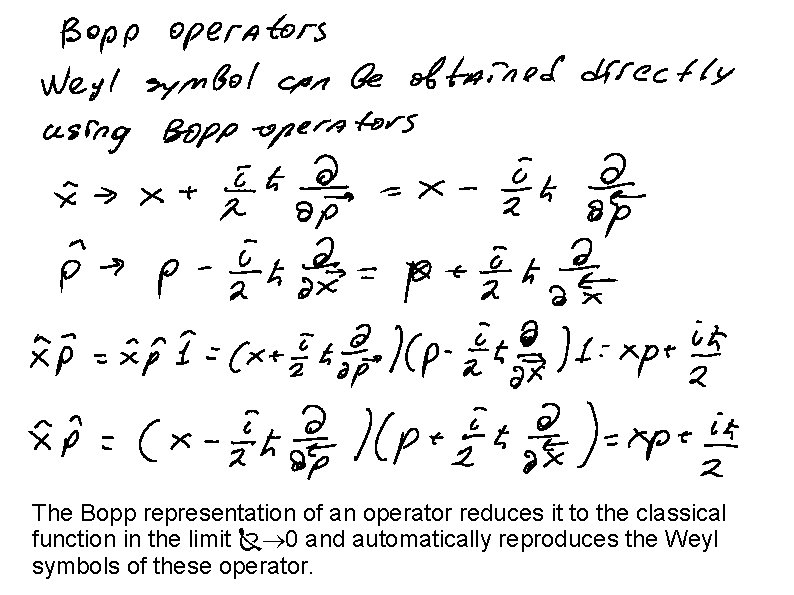 Bopp operators
Weyl symbol can be obtained directly
using Bopp operators
x̂ → x + i/2 ħ ∂/∂p⃗ = x − i/2 ħ ∂/∂p⃖
p̂ → p − i/2 ħ ∂/∂x⃗ = p + i/2 ħ ∂/∂x⃖
x̂ p̂ = x̂ p̂ 1̂ = (x + i/2 ħ ∂/∂p⃗)(p − i/2 ħ ∂/∂x⃗) 1 = xp + iħ/2
x̂ p̂ = (x − i/2 ħ ∂/∂p⃖)(p + i/2 ħ ∂/∂x⃖) = xp + iħ/2
The Bopp representation of an operator reduces it to the classical
function in the limit ħ→0 and automatically reproduces the Weyl
symbols of these operator.